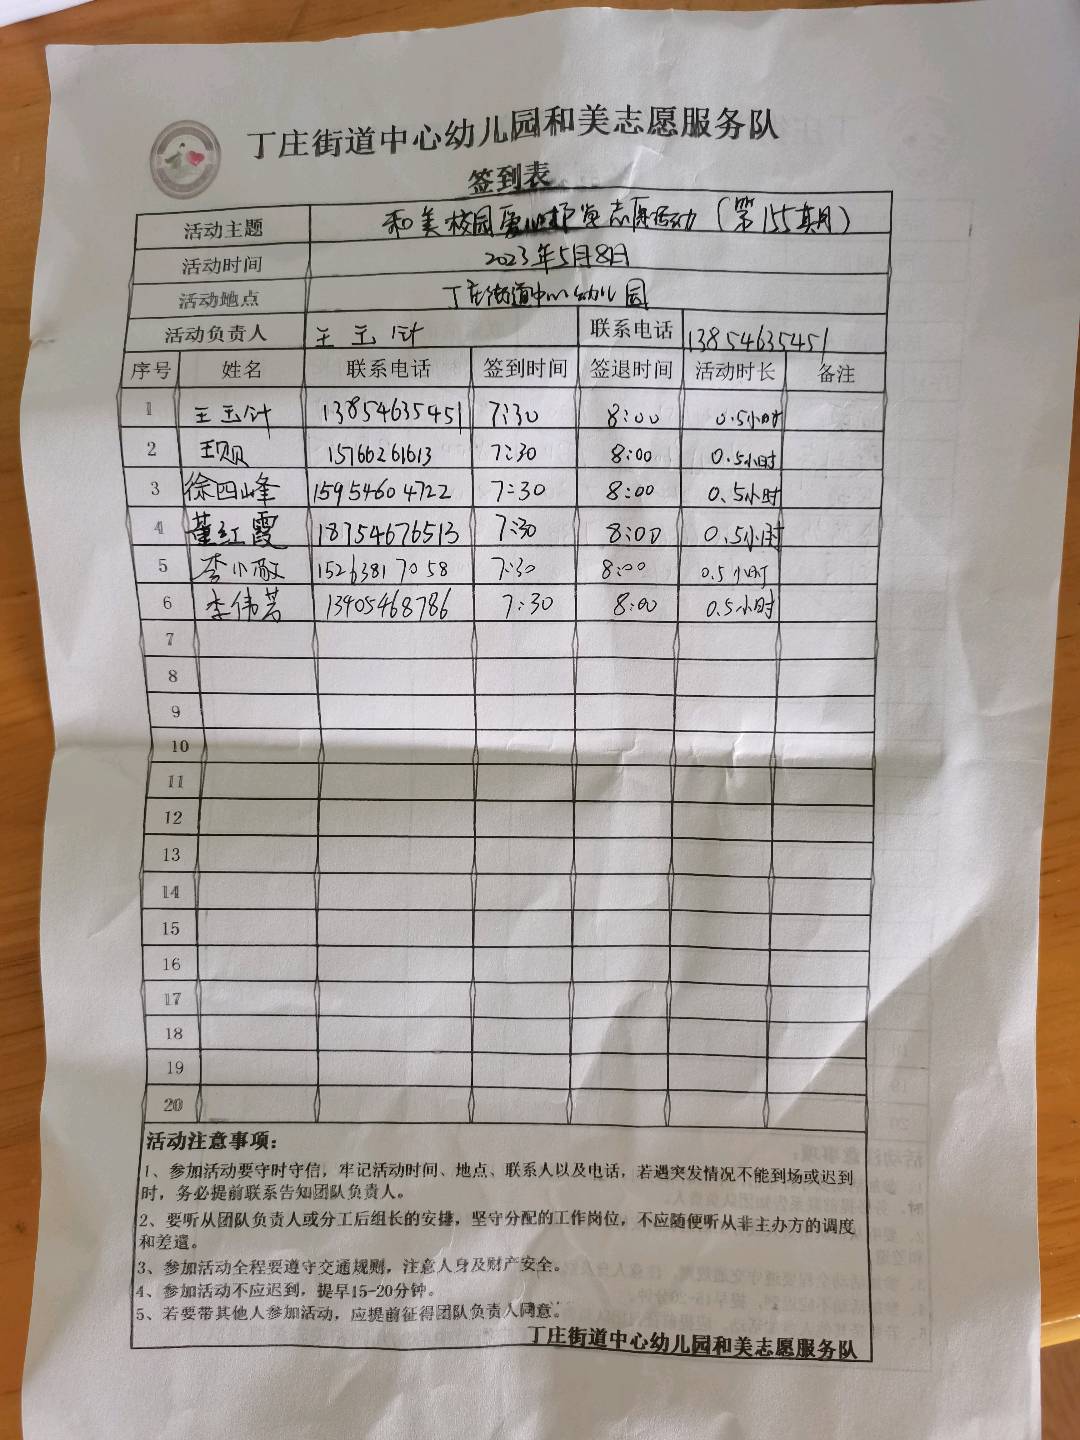 丁庄街道中心幼儿园和美志愿服务队
签到表
活动主题 和美校园爱心护学志愿活动（第155期）
活动时间 2023年5月8日
活动地点 丁庄街道中心幼儿园
活动负责人 王玉针 联系电话 13854635451
序号 姓名 联系电话 签到时间 签退时间 活动时长 备注
1 王玉针 13854635451 7:30 8:00 0.5小时
2 15766261613 7:30 8:00 0.5小时
3 徐四峰 15954604722 7:30 8:00 0.5小时
4 董红霞 18754676513 7:30 8:00 0.5小时
5 李小敏 15263817058 7:30 8:00 0.5小时
6 李伟芳 13405468786 7:30 8:00 0.5小时
7
8
9
10
11
12
13
14
15
16
17
18
19
20
活动注意事项：
1、参加活动要守时守信，牢记活动时间、地点、联系人以及电话，若遇突发情况不能到场或迟到
时，务必提前联系告知团队负责人。
2、要听从团队负责人或分工后组长的安排，坚守分配的工作岗位，不应随便听从非主办方的调度
和差遣。
3、参加活动全程要遵守交通规则，注意人身及财产安全。
4、参加活动不应迟到，提早15-20分钟。
5、若要带其他人参加活动，应提前征得团队负责人同意。
丁庄街道中心幼儿园和美志愿服务队